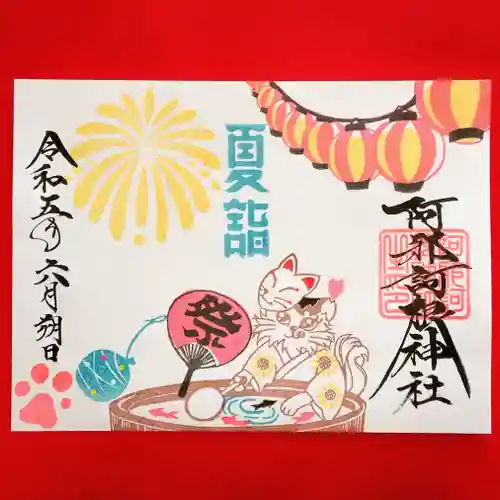 夏詣
阿邪訶根神社
祭
令和五年
六月朔日